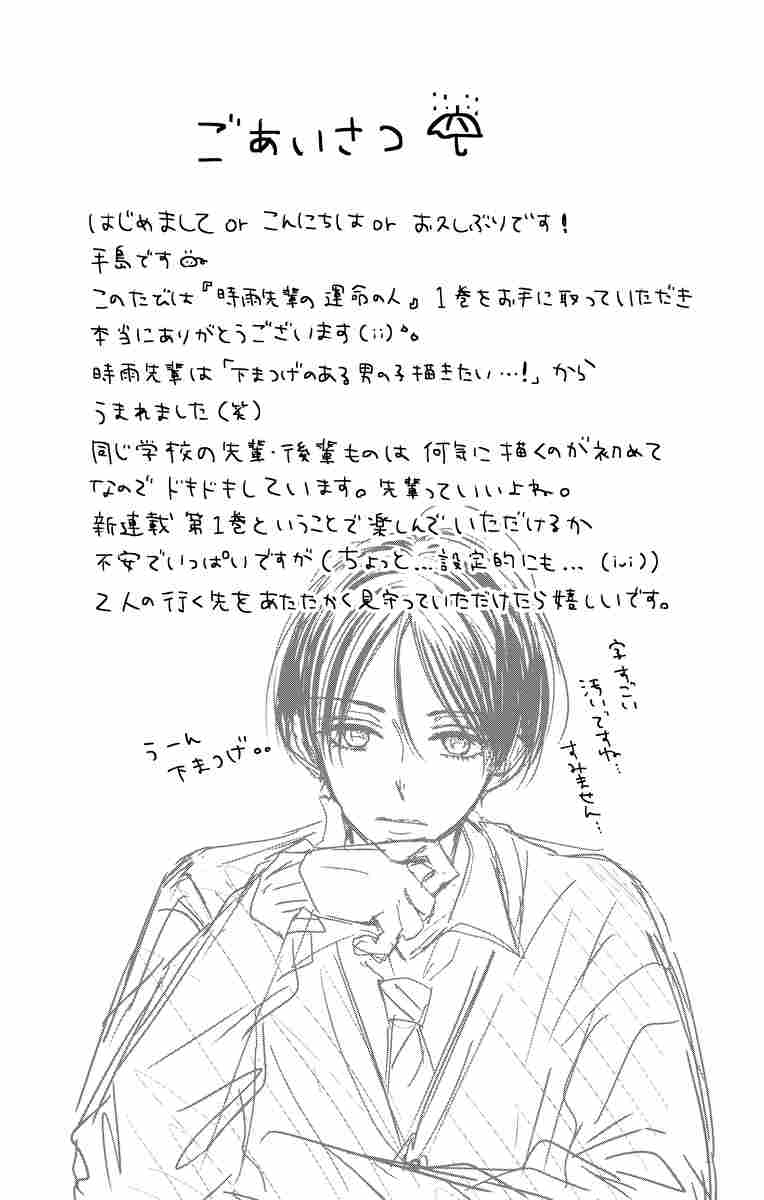 ごあいさつ
はじめまして or こんにちは or お久しぶりです!
手島です
このたびは『時雨先輩の運命の人』1巻をお手に取っていただき
本当にありがとうございます(;;)
時雨先輩は「下まつげのある男の子描きたい…!」から
うまれました(笑)
同じ学校の先輩・後輩ものは何気に描くのが初めて
なのでドキドキしています。先輩っていいよね。
新連載 第1巻ということで楽しんでいただけるか
不安でいっぱいですが(ちょっと…設定的にも…(;v;))
2人の行く先をあたたかく見守っていただけたら嬉しいです。
字すごい
汚いですね…
すみません…
うーん
下まつげ。。